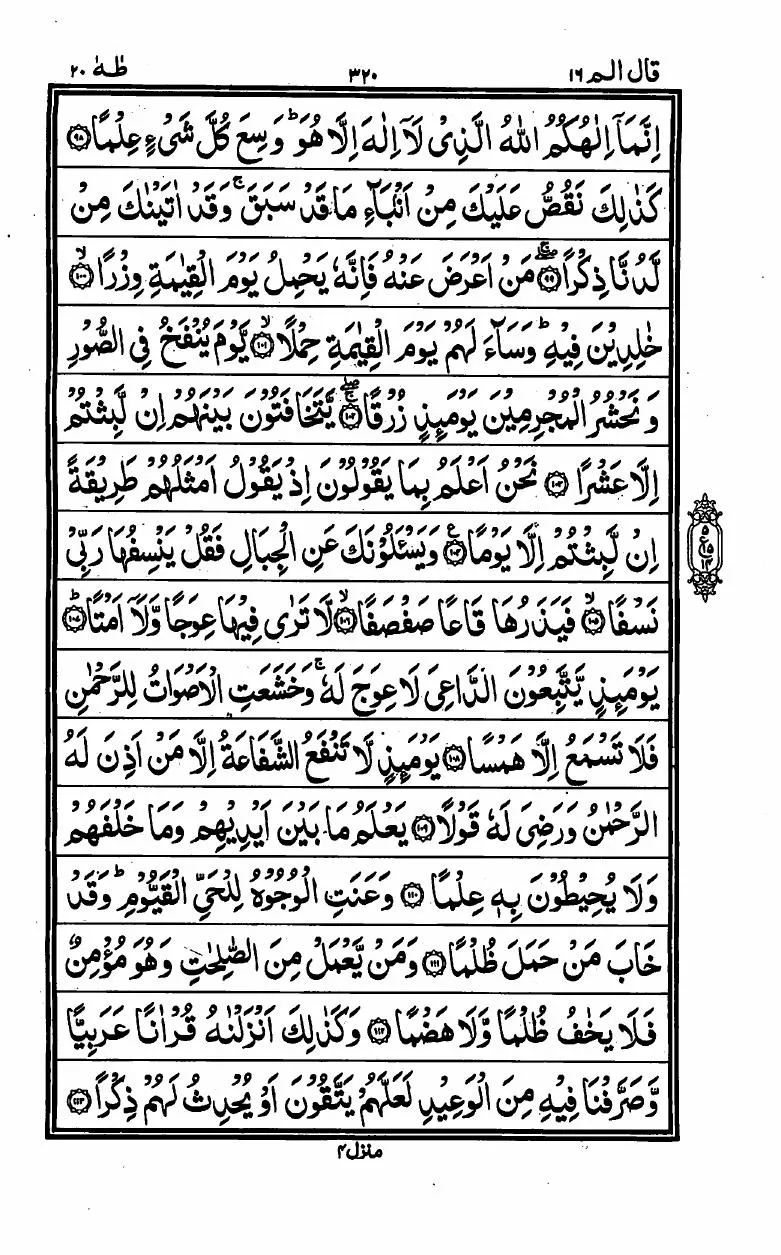 قال الم ١٦ ٣٢٠ طٰهٰ ٢٠
اِنَّمَاۤ اِلٰهُكُمُ اللّٰهُ الَّذِیْ لَاۤ اِلٰهَ اِلَّا هُوَ ؕ وَسِعَ كُلَّ شَیْءٍ عِلْمًا ﴿٩٨﴾
كَذٰلِكَ نَقُصُّ عَلَیْكَ مِنْ اَنْۢبَآءِ مَا قَدْ سَبَقَ ۚ وَقَدْ اٰتَیْنٰكَ مِنْ
لَّدُنَّا ذِكْرًا ﴿٩٩﴾ مَنْ اَعْرَضَ عَنْهُ فَاِنَّهٗ یَحْمِلُ یَوْمَ الْقِیٰمَةِ وِزْرًا ﴿١٠٠﴾ ۙ
خٰلِدِیْنَ فِیْهِ ؕ وَسَآءَ لَهُمْ یَوْمَ الْقِیٰمَةِ حِمْلًا ﴿١٠١﴾ ۙ یَّوْمَ یُنْفَخُ فِی الصُّوْرِ
وَنَحْشُرُ الْمُجْرِمِیْنَ یَوْمَئِذٍ زُرْقًا ﴿١٠٢﴾ یَّتَخَافَتُوْنَ بَیْنَهُمْ اِنْ لَّبِثْتُمْ
اِلَّا عَشْرًا ﴿١٠٣﴾ نَحْنُ اَعْلَمُ بِمَا یَقُوْلُوْنَ اِذْ یَقُوْلُ اَمْثَلُهُمْ طَرِیْقَةً
اِنْ لَّبِثْتُمْ اِلَّا یَوْمًا ﴿١٠٤﴾ ع وَیَسْـَٔلُوْنَكَ عَنِ الْجِبَالِ فَقُلْ یَنْسِفُهَا رَبِّیْ
٥
ع ١٥
١٤
نَسْفًا ﴿١٠٥﴾ ۙ فَیَذَرُهَا قَاعًا صَفْصَفًا ﴿١٠٦﴾ ۙ لَّا تَرٰی فِیْهَا عِوَجًا وَّلَاۤ اَمْتًا ﴿١٠٧﴾ ؕ
یَوْمَئِذٍ یَّتَّبِعُوْنَ الدَّاعِیَ لَا عِوَجَ لَهٗ ۚ وَخَشَعَتِ الْاَصْوَاتُ لِلرَّحْمٰنِ
فَلَا تَسْمَعُ اِلَّا هَمْسًا ﴿١٠٨﴾ یَوْمَئِذٍ لَّا تَنْفَعُ الشَّفَاعَةُ اِلَّا مَنْ اَذِنَ لَهُ
الرَّحْمٰنُ وَرَضِیَ لَهٗ قَوْلًا ﴿١٠٩﴾ یَعْلَمُ مَا بَیْنَ اَیْدِیْهِمْ وَمَا خَلْفَهُمْ
وَلَا یُحِیْطُوْنَ بِهٖ عِلْمًا ﴿١١٠﴾ وَعَنَتِ الْوُجُوْهُ لِلْحَیِّ الْقَیُّوْمِ ؕ وَقَدْ
خَابَ مَنْ حَمَلَ ظُلْمًا ﴿١١١﴾ وَمَنْ یَّعْمَلْ مِنَ الصّٰلِحٰتِ وَهُوَ مُؤْمِنٌ
فَلَا یَخٰفُ ظُلْمًا وَّلَا هَضْمًا ﴿١١٢﴾ وَكَذٰلِكَ اَنْزَلْنٰهُ قُرْاٰنًا عَرَبِیًّا
وَّصَرَّفْنَا فِیْهِ مِنَ الْوَعِیْدِ لَعَلَّهُمْ یَتَّقُوْنَ اَوْ یُحْدِثُ لَهُمْ ذِكْرًا ﴿١١٣﴾
منزل ٤